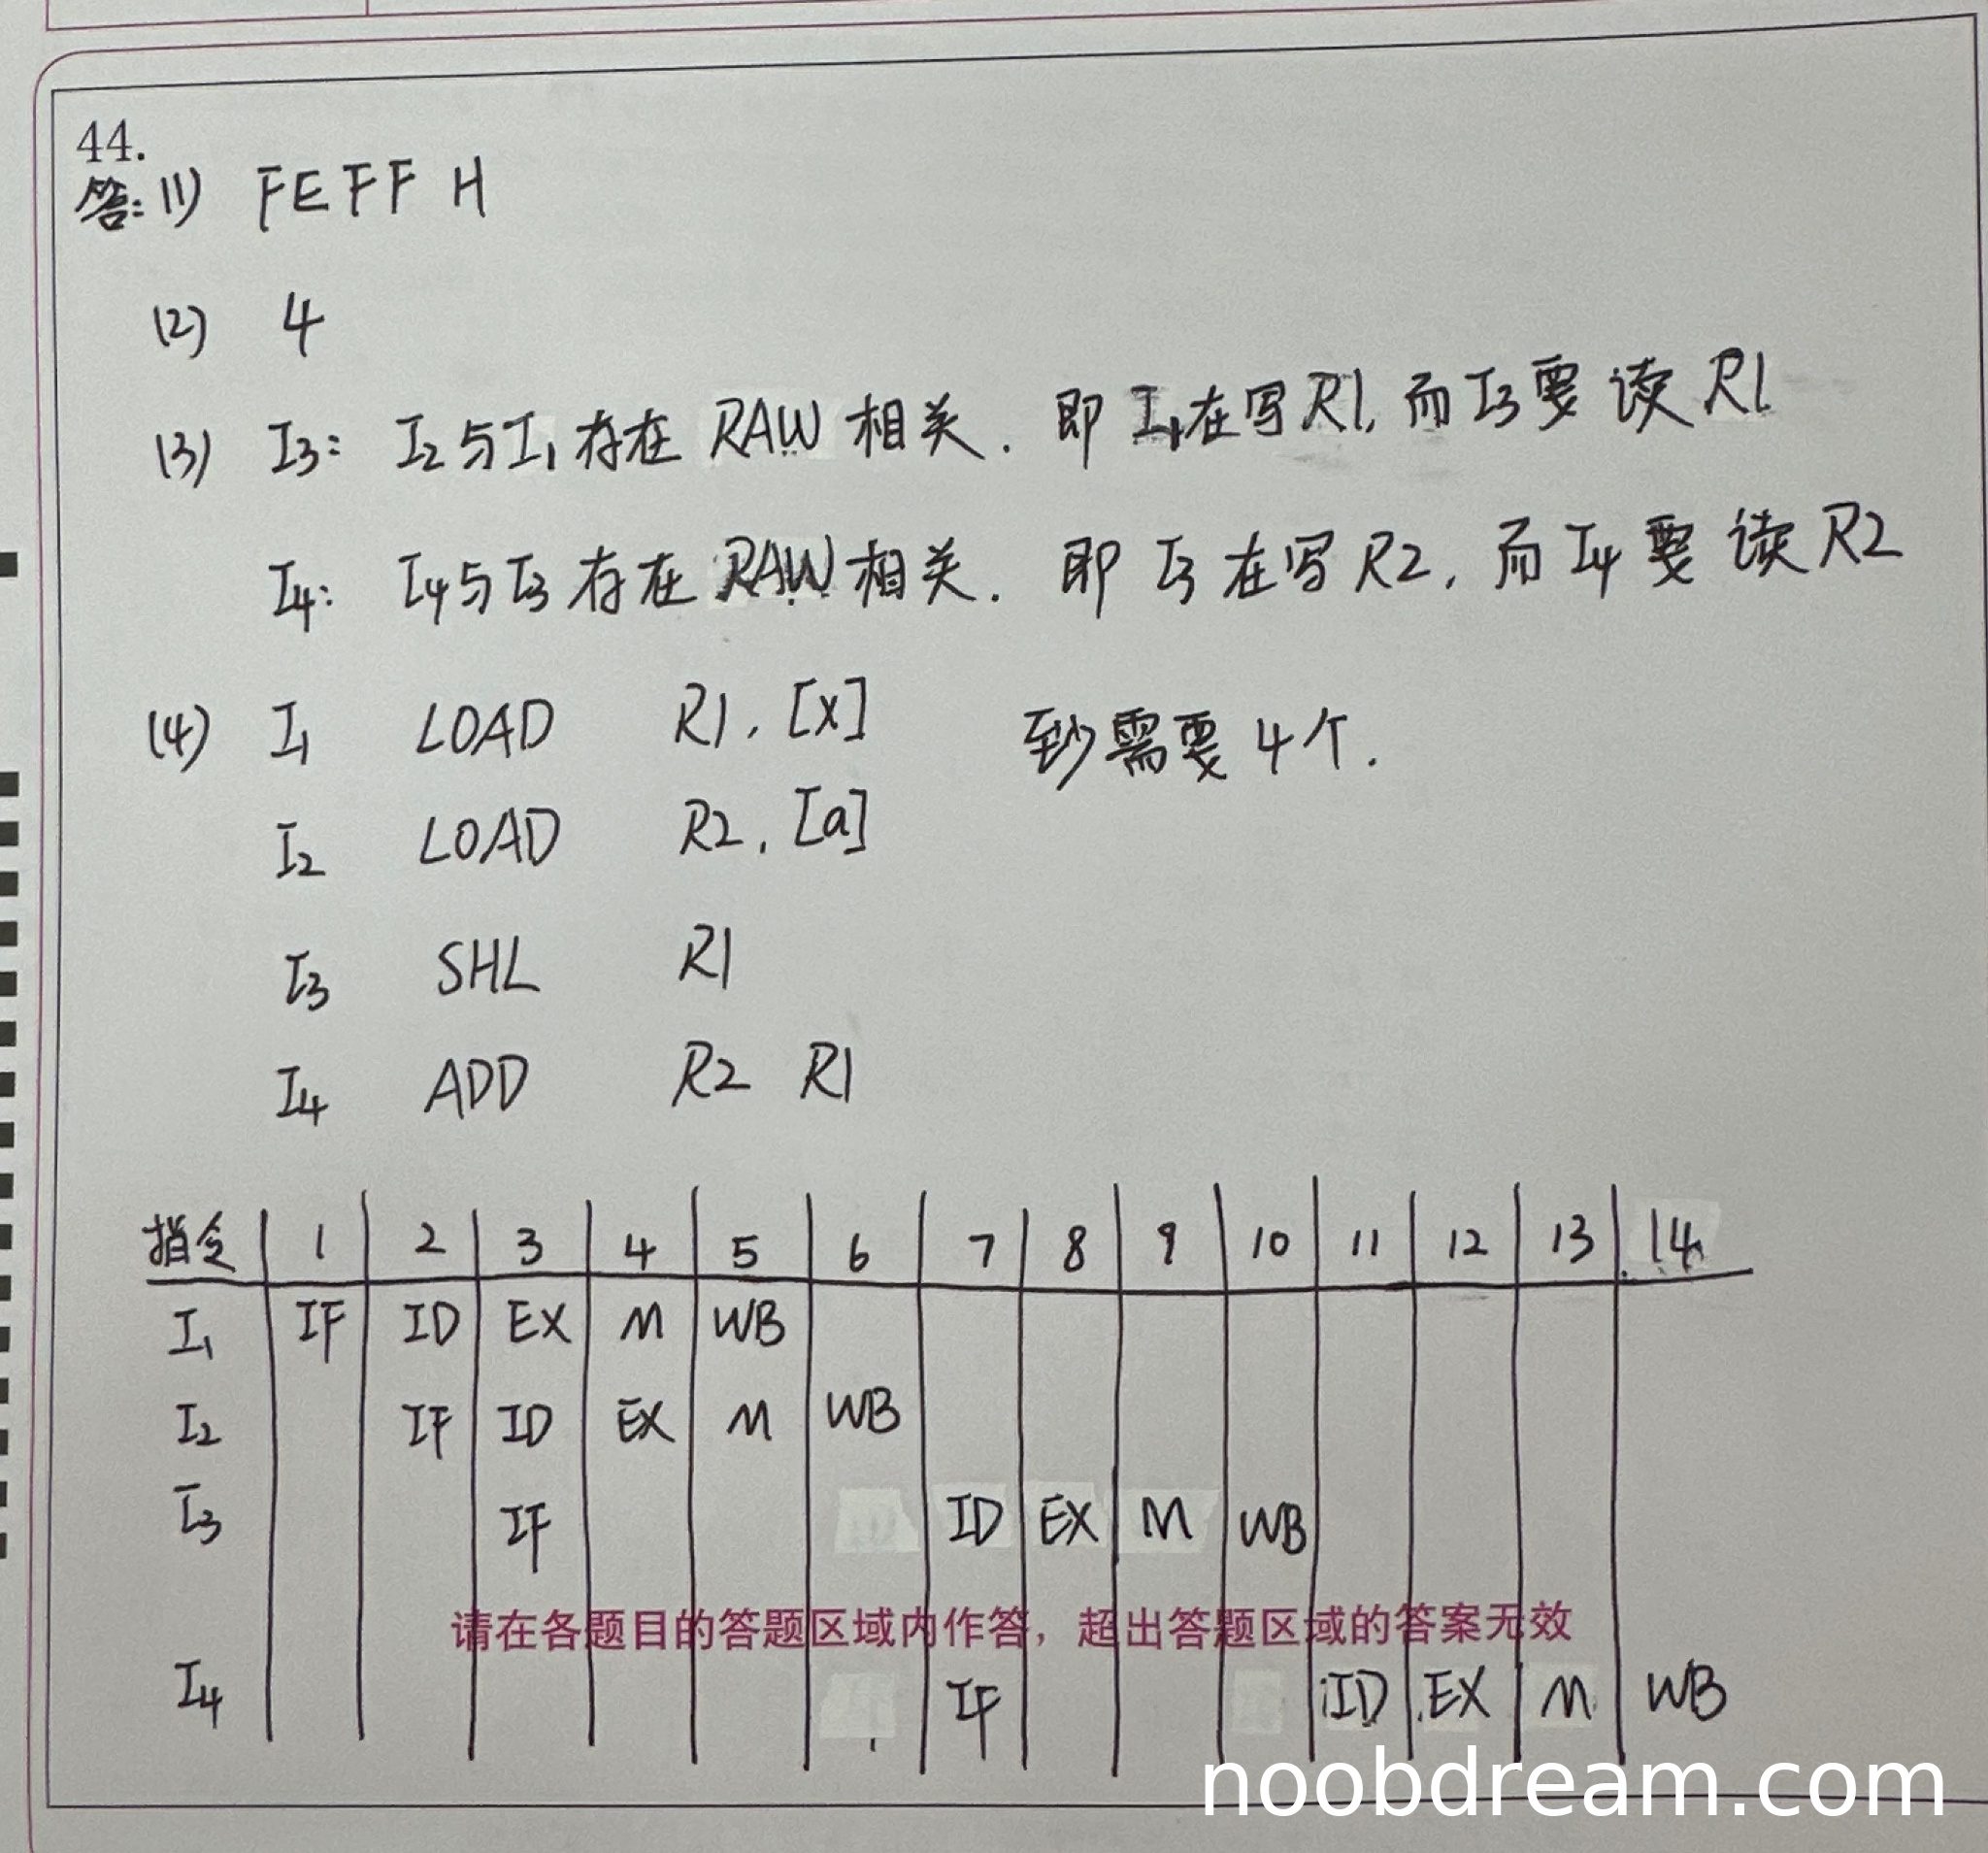 44.
答: (1) FEFF H
(2) 4
(3) I3: I2与I1存在 RAW 相关. 即 I1在写R1, 而I3要读R1
I4: I4与I3存在RAW相关. 即 I3在写R2, 而I4要读R2
(4) I1 LOAD R1, [x] 至少需要4个.
I2 LOAD R2, [a]
I3 SHL R1
I4 ADD R2 R1
指令 1 2 3 4 5 6 7 8 9 10 11 12 13 14
I1 IF ID EX M WB
I2 IF ID EX M WB
I3 IF ID EX M WB
请在各题目的答题区域内作答，超出答题区域的答案无效
I4 IF ID EX M WB
noobdream.com